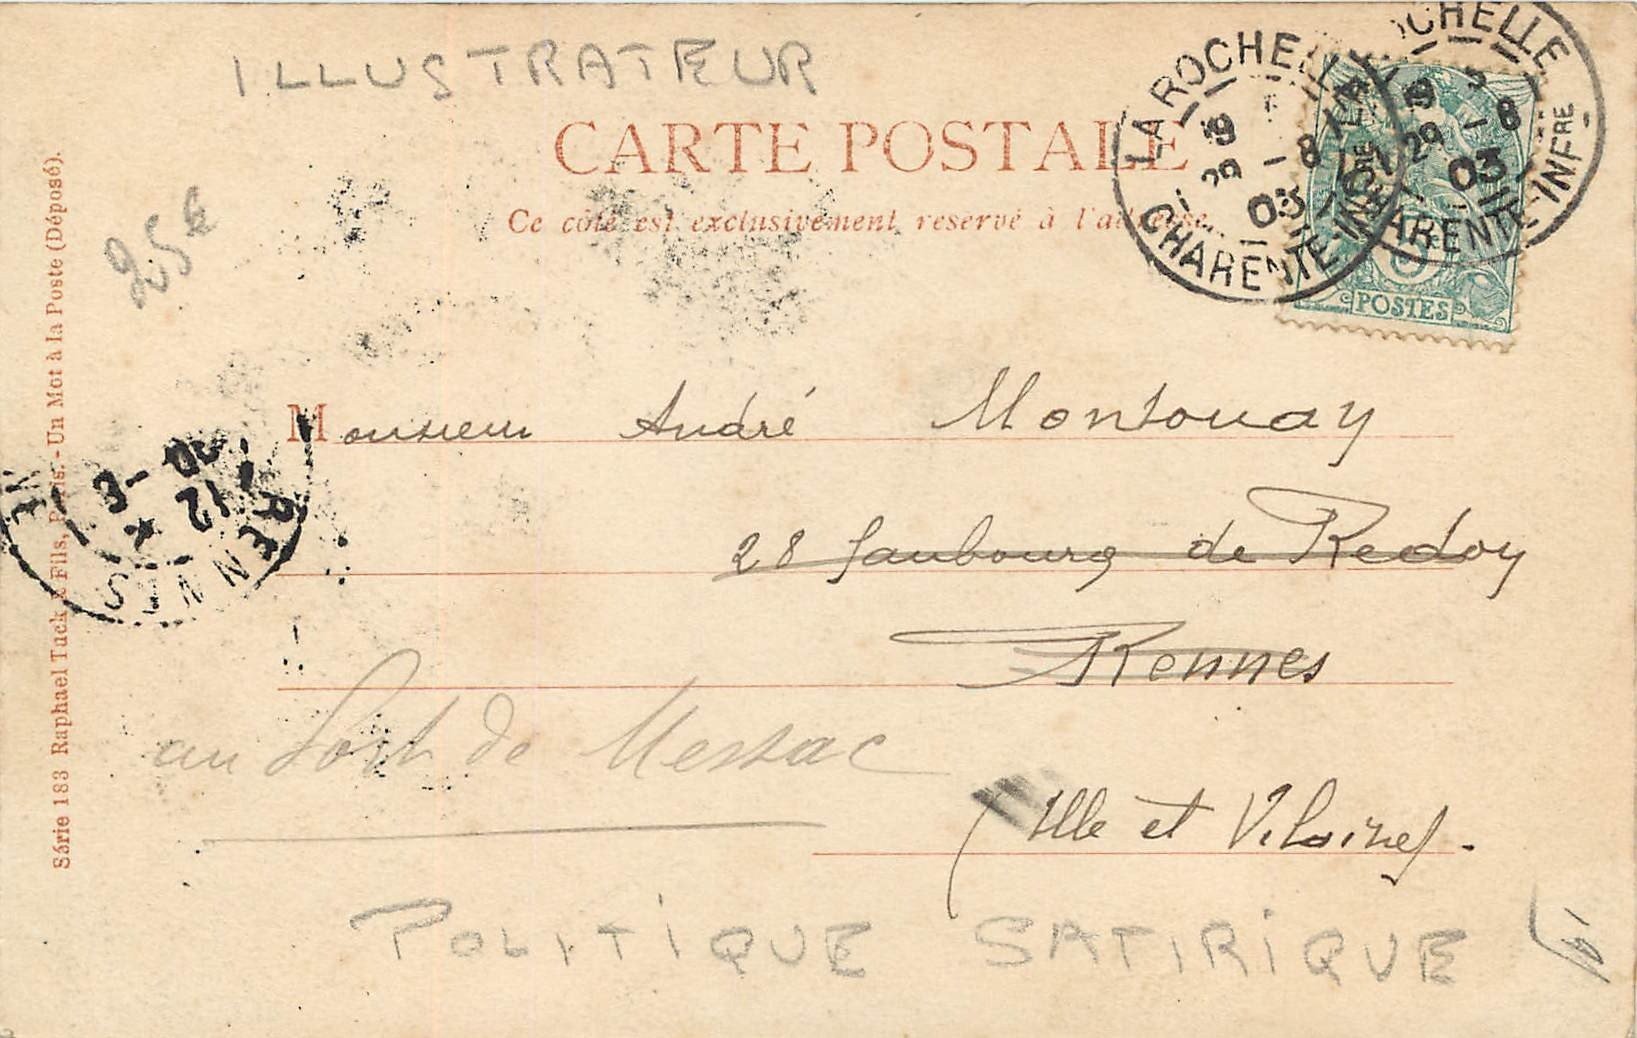 ILLUSTRATEUR
CARTE POSTALE
Ce côté est exclusivement reservé à l'adresse
LA ROCHELLE
29 -8
03
CHARENTE-INFRE
LA ROCHELLE
29 -8
03
CHARENTE-INFRE
POSTES
25€
Monsieur André Montouay
28 faubourg de Redon
Rennes
au Port de Messac
Ille et Vilaine
POLITIQUE SATIRIQUE
RENNES
12
-8
Série 183 Raphael Tuck & Fils, Paris. - Un Mot à la Poste (Déposé).